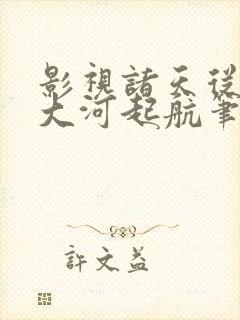 影視諸天從
大河起航筆
許文益